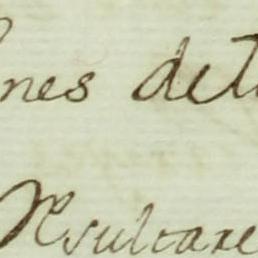 nes det
Resultare